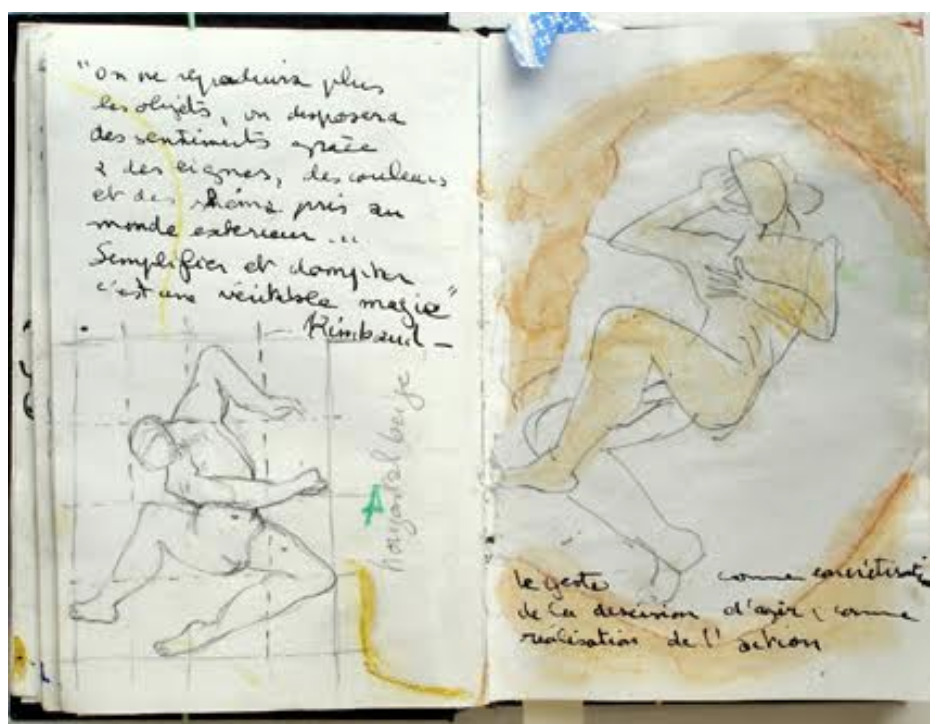 "on ne reproduira plus
les objets, on disposera
des sentiments grâce
à des lignes, des couleurs
et des pris au
monde extérieur ...
Semplifier et dompter
c'est une véritable magie"
Rimbaud –
A
le geste comme concrétisation
de la descision d'agir, comme
réalisation de l'action